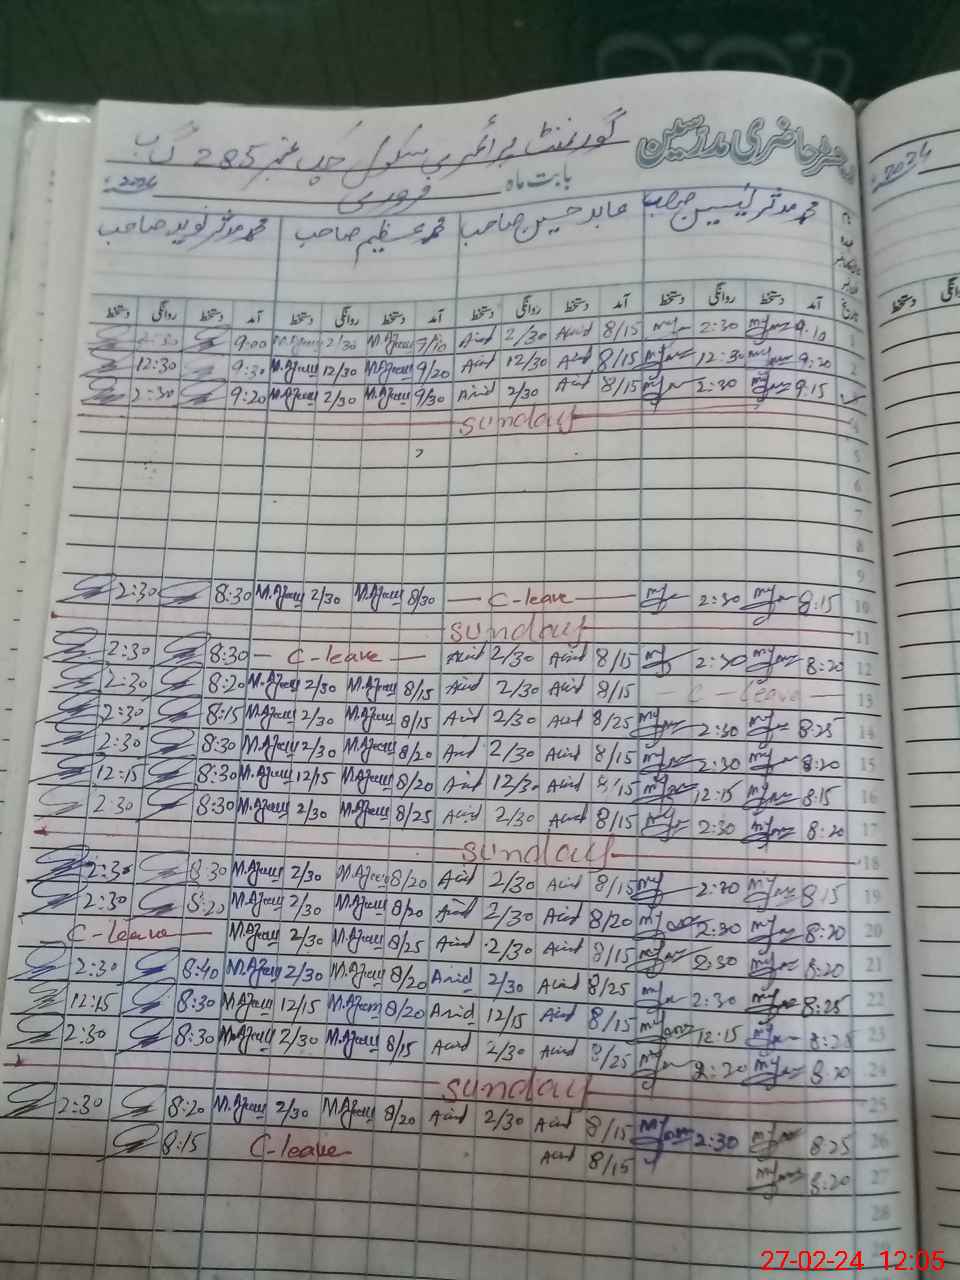 رجسٹر حاضری مدرسین
گورنمنٹ پرائمری سکول چک نمبر 285 گ ب
بابت ماہ فروری 2024ء
محمد مدثر یٰسین صاحب عابد حسین صاحب محمد عظیم صاحب محمد مدثر نوید صاحب
تاریخ آمد دستخط روانگی دستخط آمد دستخط روانگی دستخط آمد دستخط روانگی دستخط آمد دستخط روانگی دستخط
2:30 9:00 M.Azeem 2/30 M.Azeem Abid 2/30 Abid 8/15 2:30 9:10 1
12:30 9:30 M.Azeem 12/30 M.Azeem 9/20 Abid 12/30 Abid 8/15 12:30 9:20 2
2:30 9:20 M.Azeem 2/30 M.Azeem 9/30 Abid 2/30 Abid 8/15 2:30 9:15
Sunday 4
5
6
7
8
9
2:30 8:30 M.Azeem 2/30 M.Azeem 8/30 C-leave 2:30 8:15 10
Sunday 11
2:30 8:30 C-leave Abid 2/30 Abid 8/15 2:30 8:20 12
2:30 8:20 M.Azeem 2/30 M.Azeem 8/15 Abid 2/30 Abid 8/15 C-leave 13
2:30 8:15 M.Azeem 2/30 M.Azeem 8/15 Abid 2/30 Abid 8/25 2:30 8:25 14
2:30 8:30 M.Azeem 2/30 M.Azeem 8/20 Abid 2/30 Abid 8/15 2:30 8:20 15
12:15 8:30 M.Azeem 12/15 M.Azeem 8/20 Abid Abid 8/15 12:15 8:15 16
2:30 8:30 M.Azeem 2/30 M.Azeem 8/25 Abid 2/30 Abid 8/15 2:30 8:20 17
Sunday 18
2:30 8:30 M.Azeem 2/30 M.Azeem 8/20 Abid 2/30 Abid 8/15 8:15 19
2:30 8:20 M.Azeem 2/30 M.Azeem 8/20 Abid 2/30 Abid 8/20 2:30 8:20 20
C-leave M.Azeem 2/30 M.Azeem 8/25 Abid 2/30 Abid 8/15 2:30 8:20 21
2:30 8:40 M.Azeem 2/30 M.Azeem 8/20 Abid 2/30 Abid 8/25 2:30 8:25 22
12:15 8:30 M.Azeem 12/15 M.Azeem 8/20 Abid 12/15 Abid 8/15 12:15 8:25 23
2:30 8:30 M.Azeem 2/30 M.Azeem 8/15 Abid 2/30 Abid 8/25 8:20 24
Sunday 25
2:30 8:20 M.Azeem 2/30 M.Azeem 8/20 Abid 2/30 Abid 8/15 2:30 8:25 26
8:15 C-leave Abid 8/15 8:20 27
28
29
2024ء
دستخط
27-02-24 12:05